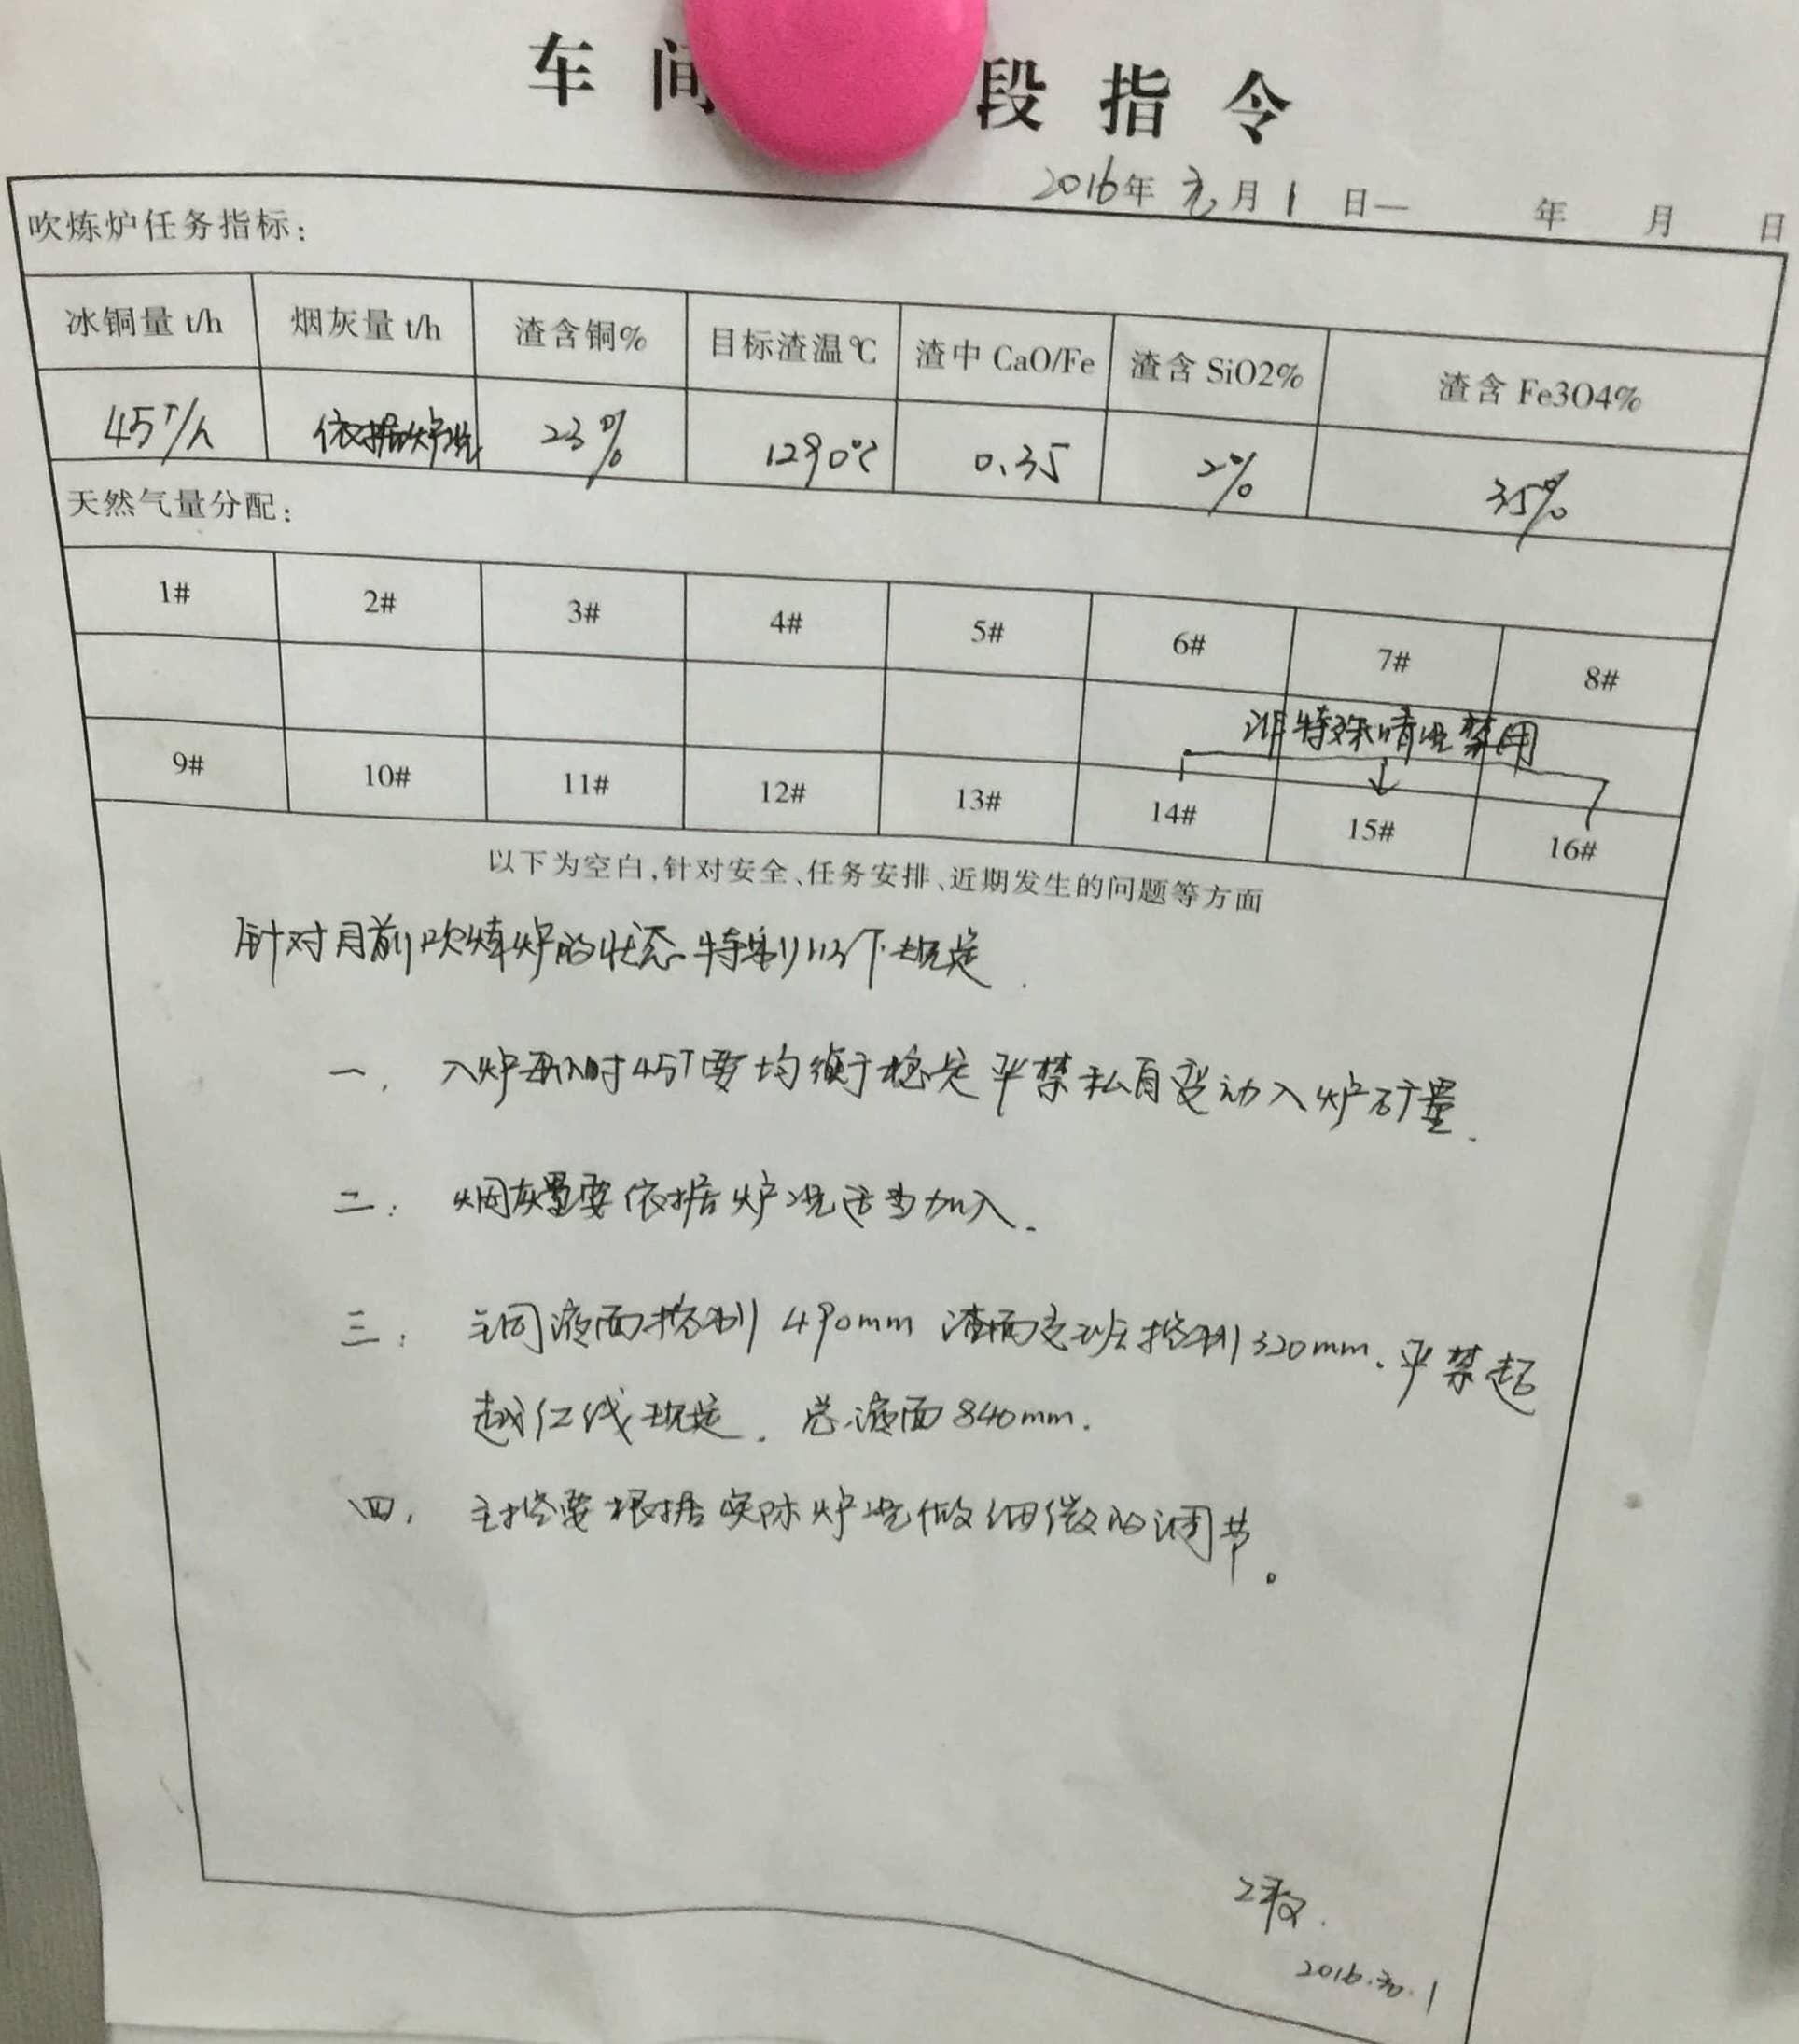 车间 段指令
2016年元月1日— 年 月 日
吹炼炉任务指标:
冰铜量 t/h 烟灰量 t/h 渣含铜% 目标渣温℃ 渣中 CaO/Fe 渣含 SiO2% 渣含 Fe3O4%
45T/h 依据炉况 23% 1290℃ 0.35 2% 35%
天然气量分配:
1# 2# 3# 4# 5# 6# 7# 8#
非特殊情况禁用
9# 10# 11# 12# 13# 14# 15# 16#
以下为空白,针对安全、任务安排、近期发生的问题等方面
针对目前吹炼炉的状态 特制 规定.
一. 入炉每小时45T要均衡于稳定 严禁私自变动入炉矿量.
二: 烟灰量要依据炉况适当加入.
三: 铜液面控制490mm 渣面交班控制320mm. 严禁超
越红线规定. 总液面840mm.
四. 主控要根据实际炉况做细微的调节。
2016.元.1